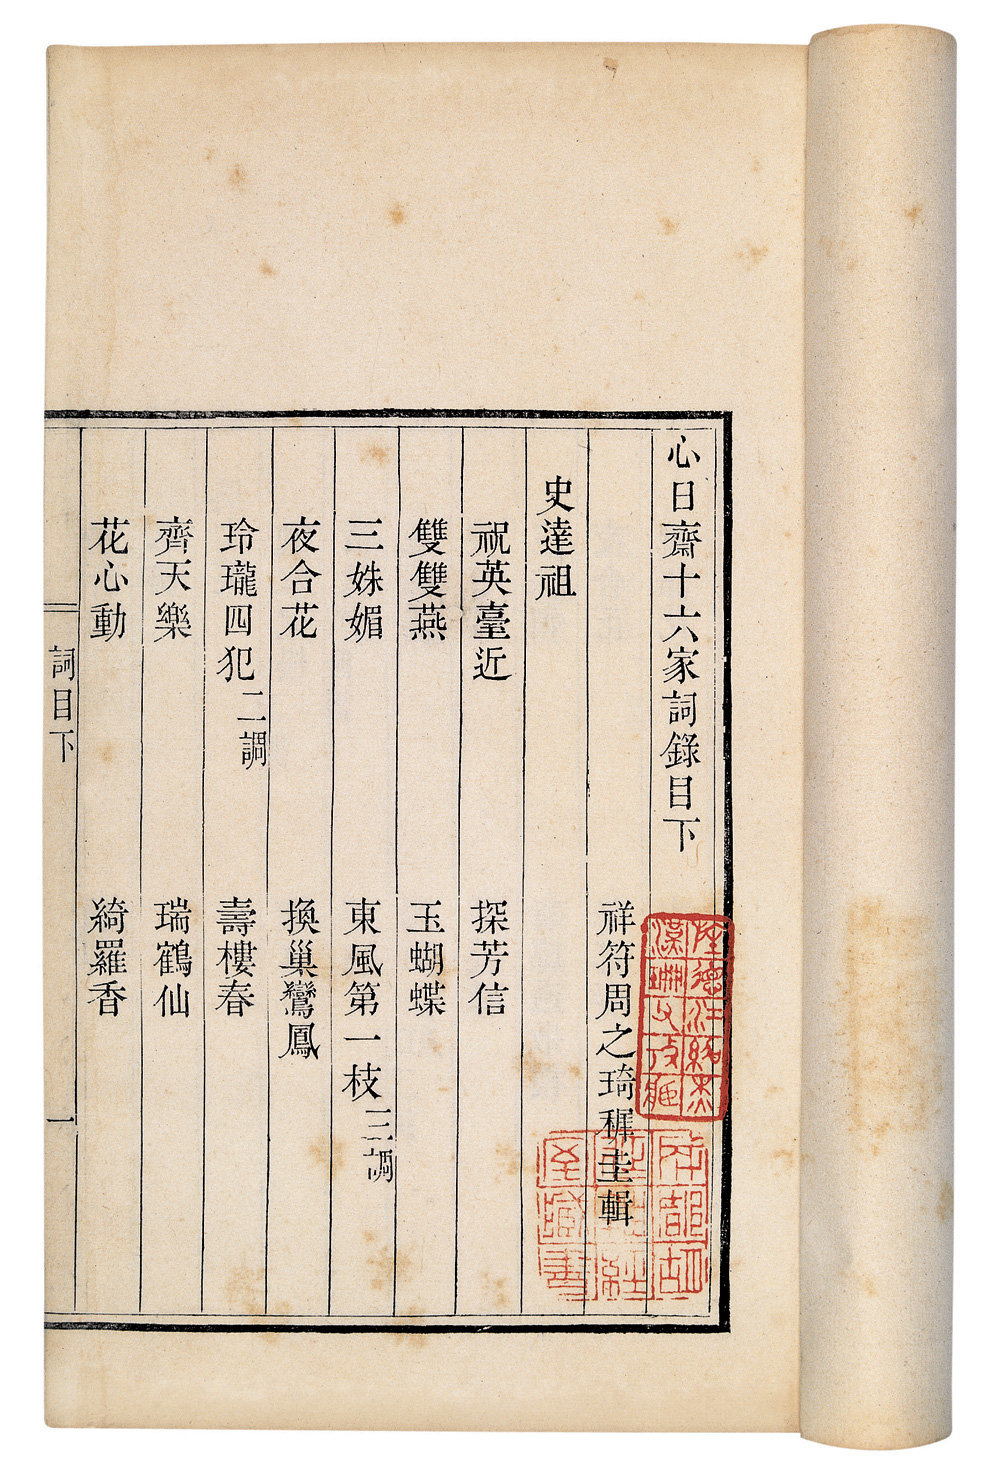 心日齋十六家詞錄目下
祥符周之琦穉圭輯
史達祖
祝英臺近 探芳信
雙雙燕 玉蝴蝶
三姝媚 東風第一枝三調
夜合花 換巢鸞鳳
玲瓏四犯二調 壽樓春
齊天樂 瑞鶴仙
花心動 綺羅香
詞目下 一